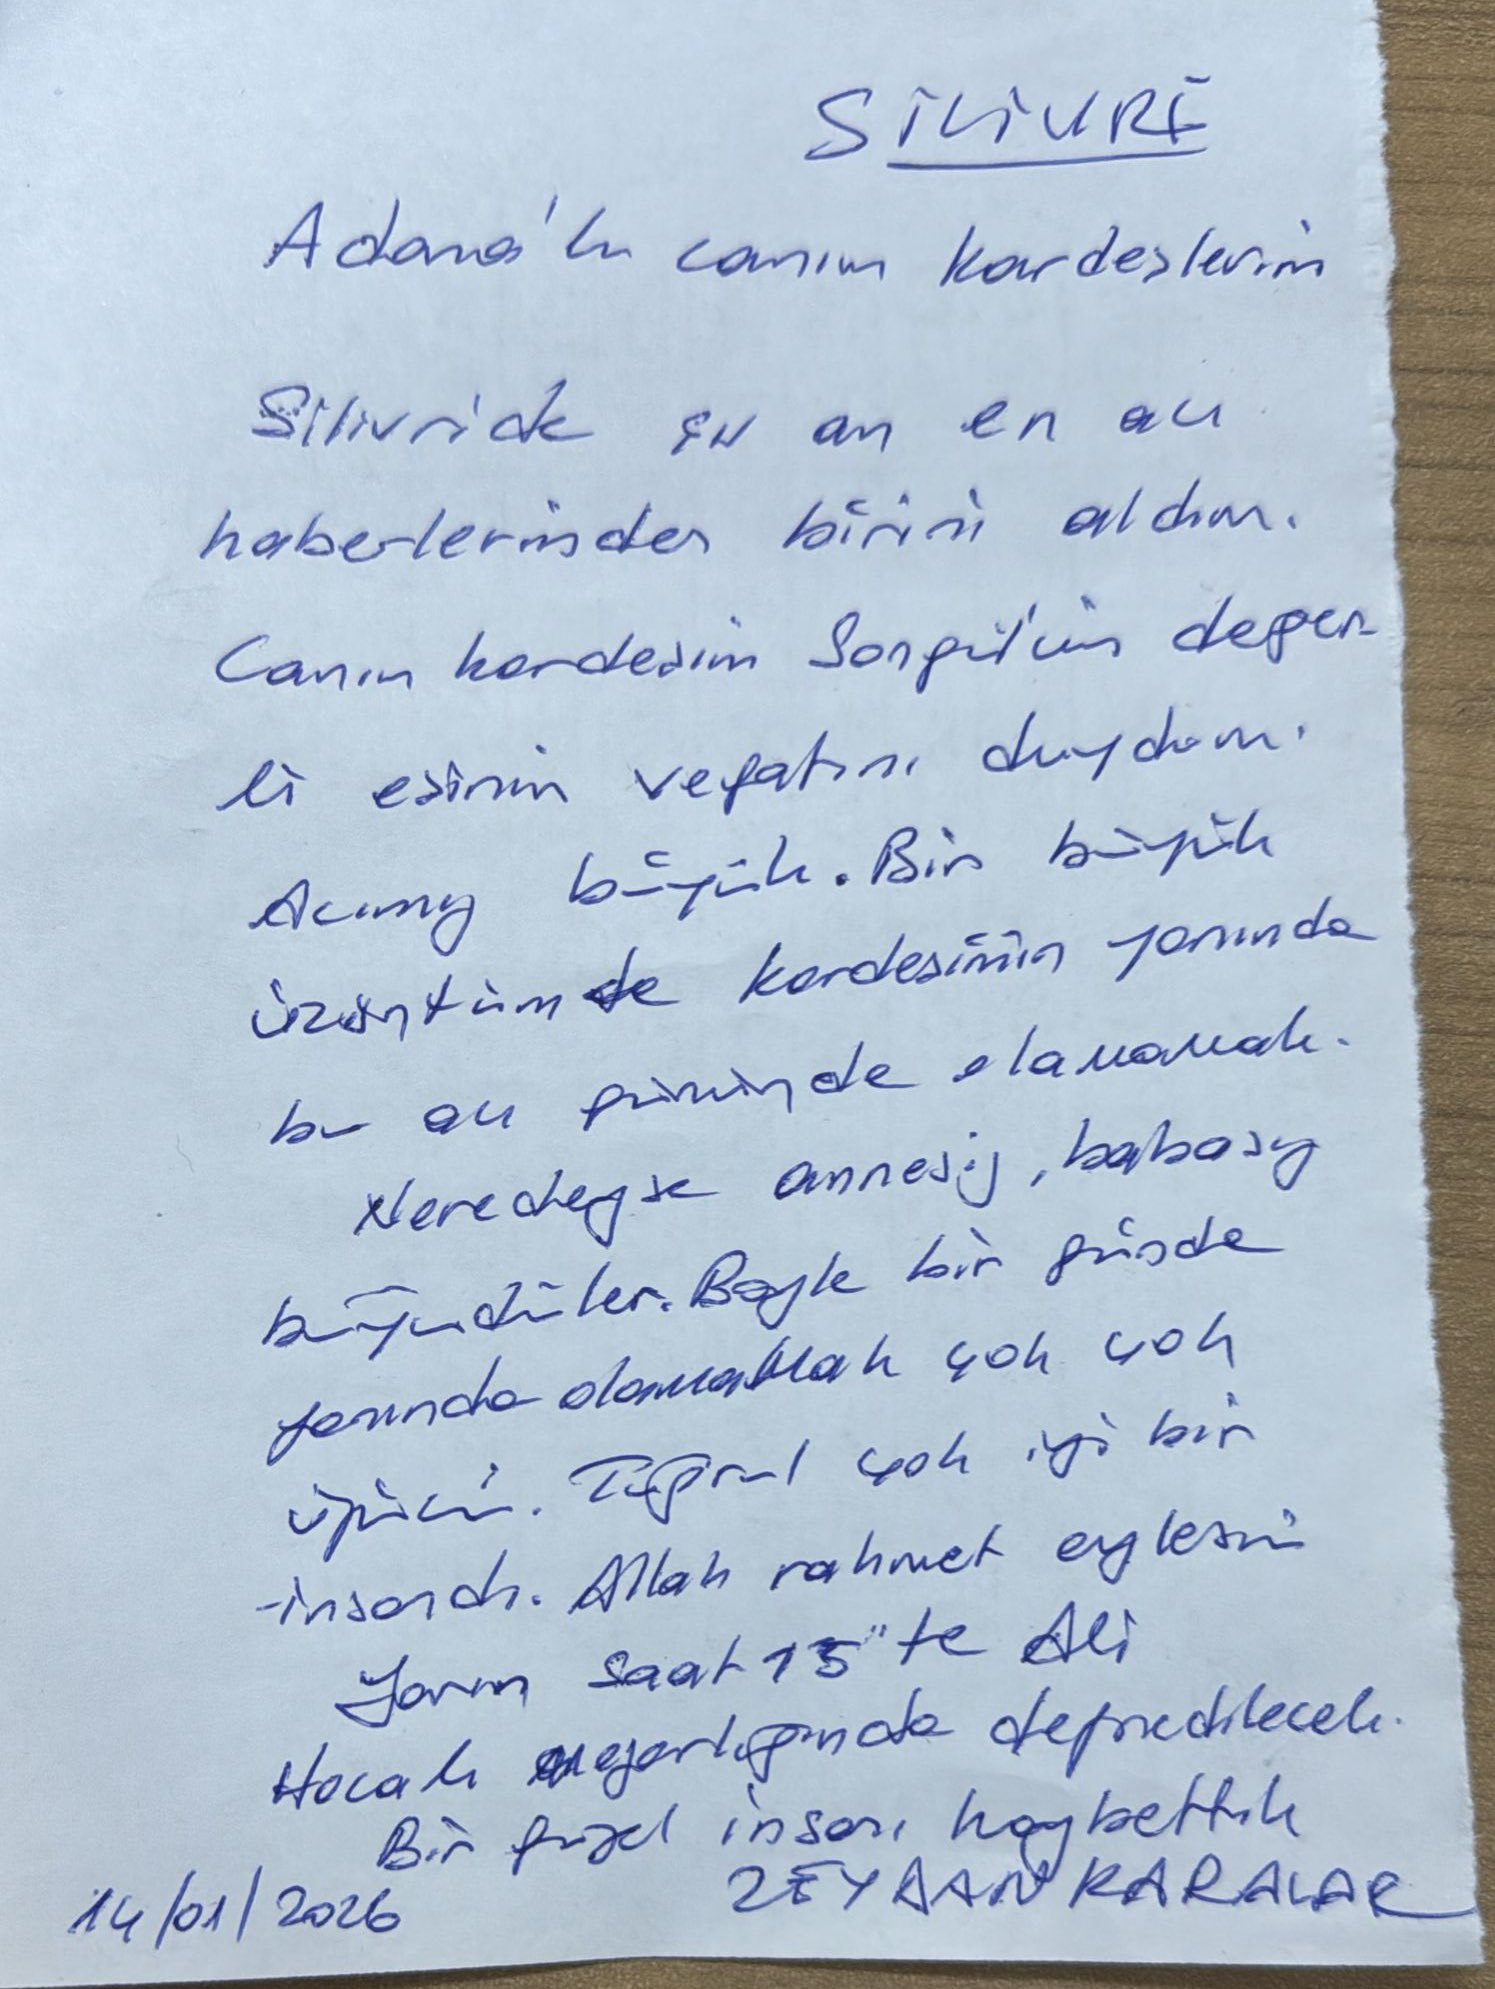 SİLİVRİ
Adana'lı canım kardeşlerim
Silivri'de şu an en acı
haberlerinden birini aldım.
Canım kardeşim Songül'ün değer-
li eşinin vefatını duydum.
Acımız büyük. Bir büyük
üzüntüm de kardeşimin yanında
bu acı gününde olamamak.
Neredeyse annesiz, babasız
büyüdüler. Böyle bir günde
yanında olamamak çok çok
üzücü. Tuğrul çok iyi bir
insandı. Allah rahmet eylesin
Yarın saat 15"te Ali
Hocalı mezarlığında defnedilecek.
Bir güzel insanı kaybettik
14/01/2026 ZEYDAN KARALAR